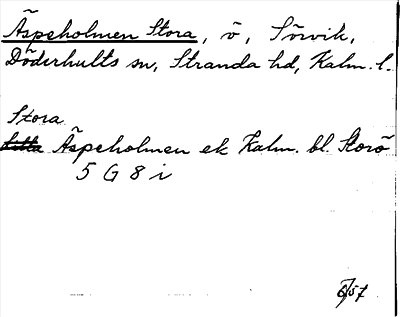 Äspeholmen Stora, ö, Sörvik,
Döderhults sn, Stranda hd, Kalm. l.
Stora
Äspeholmen ek Kalm. bl. Storö
5 G 8 i